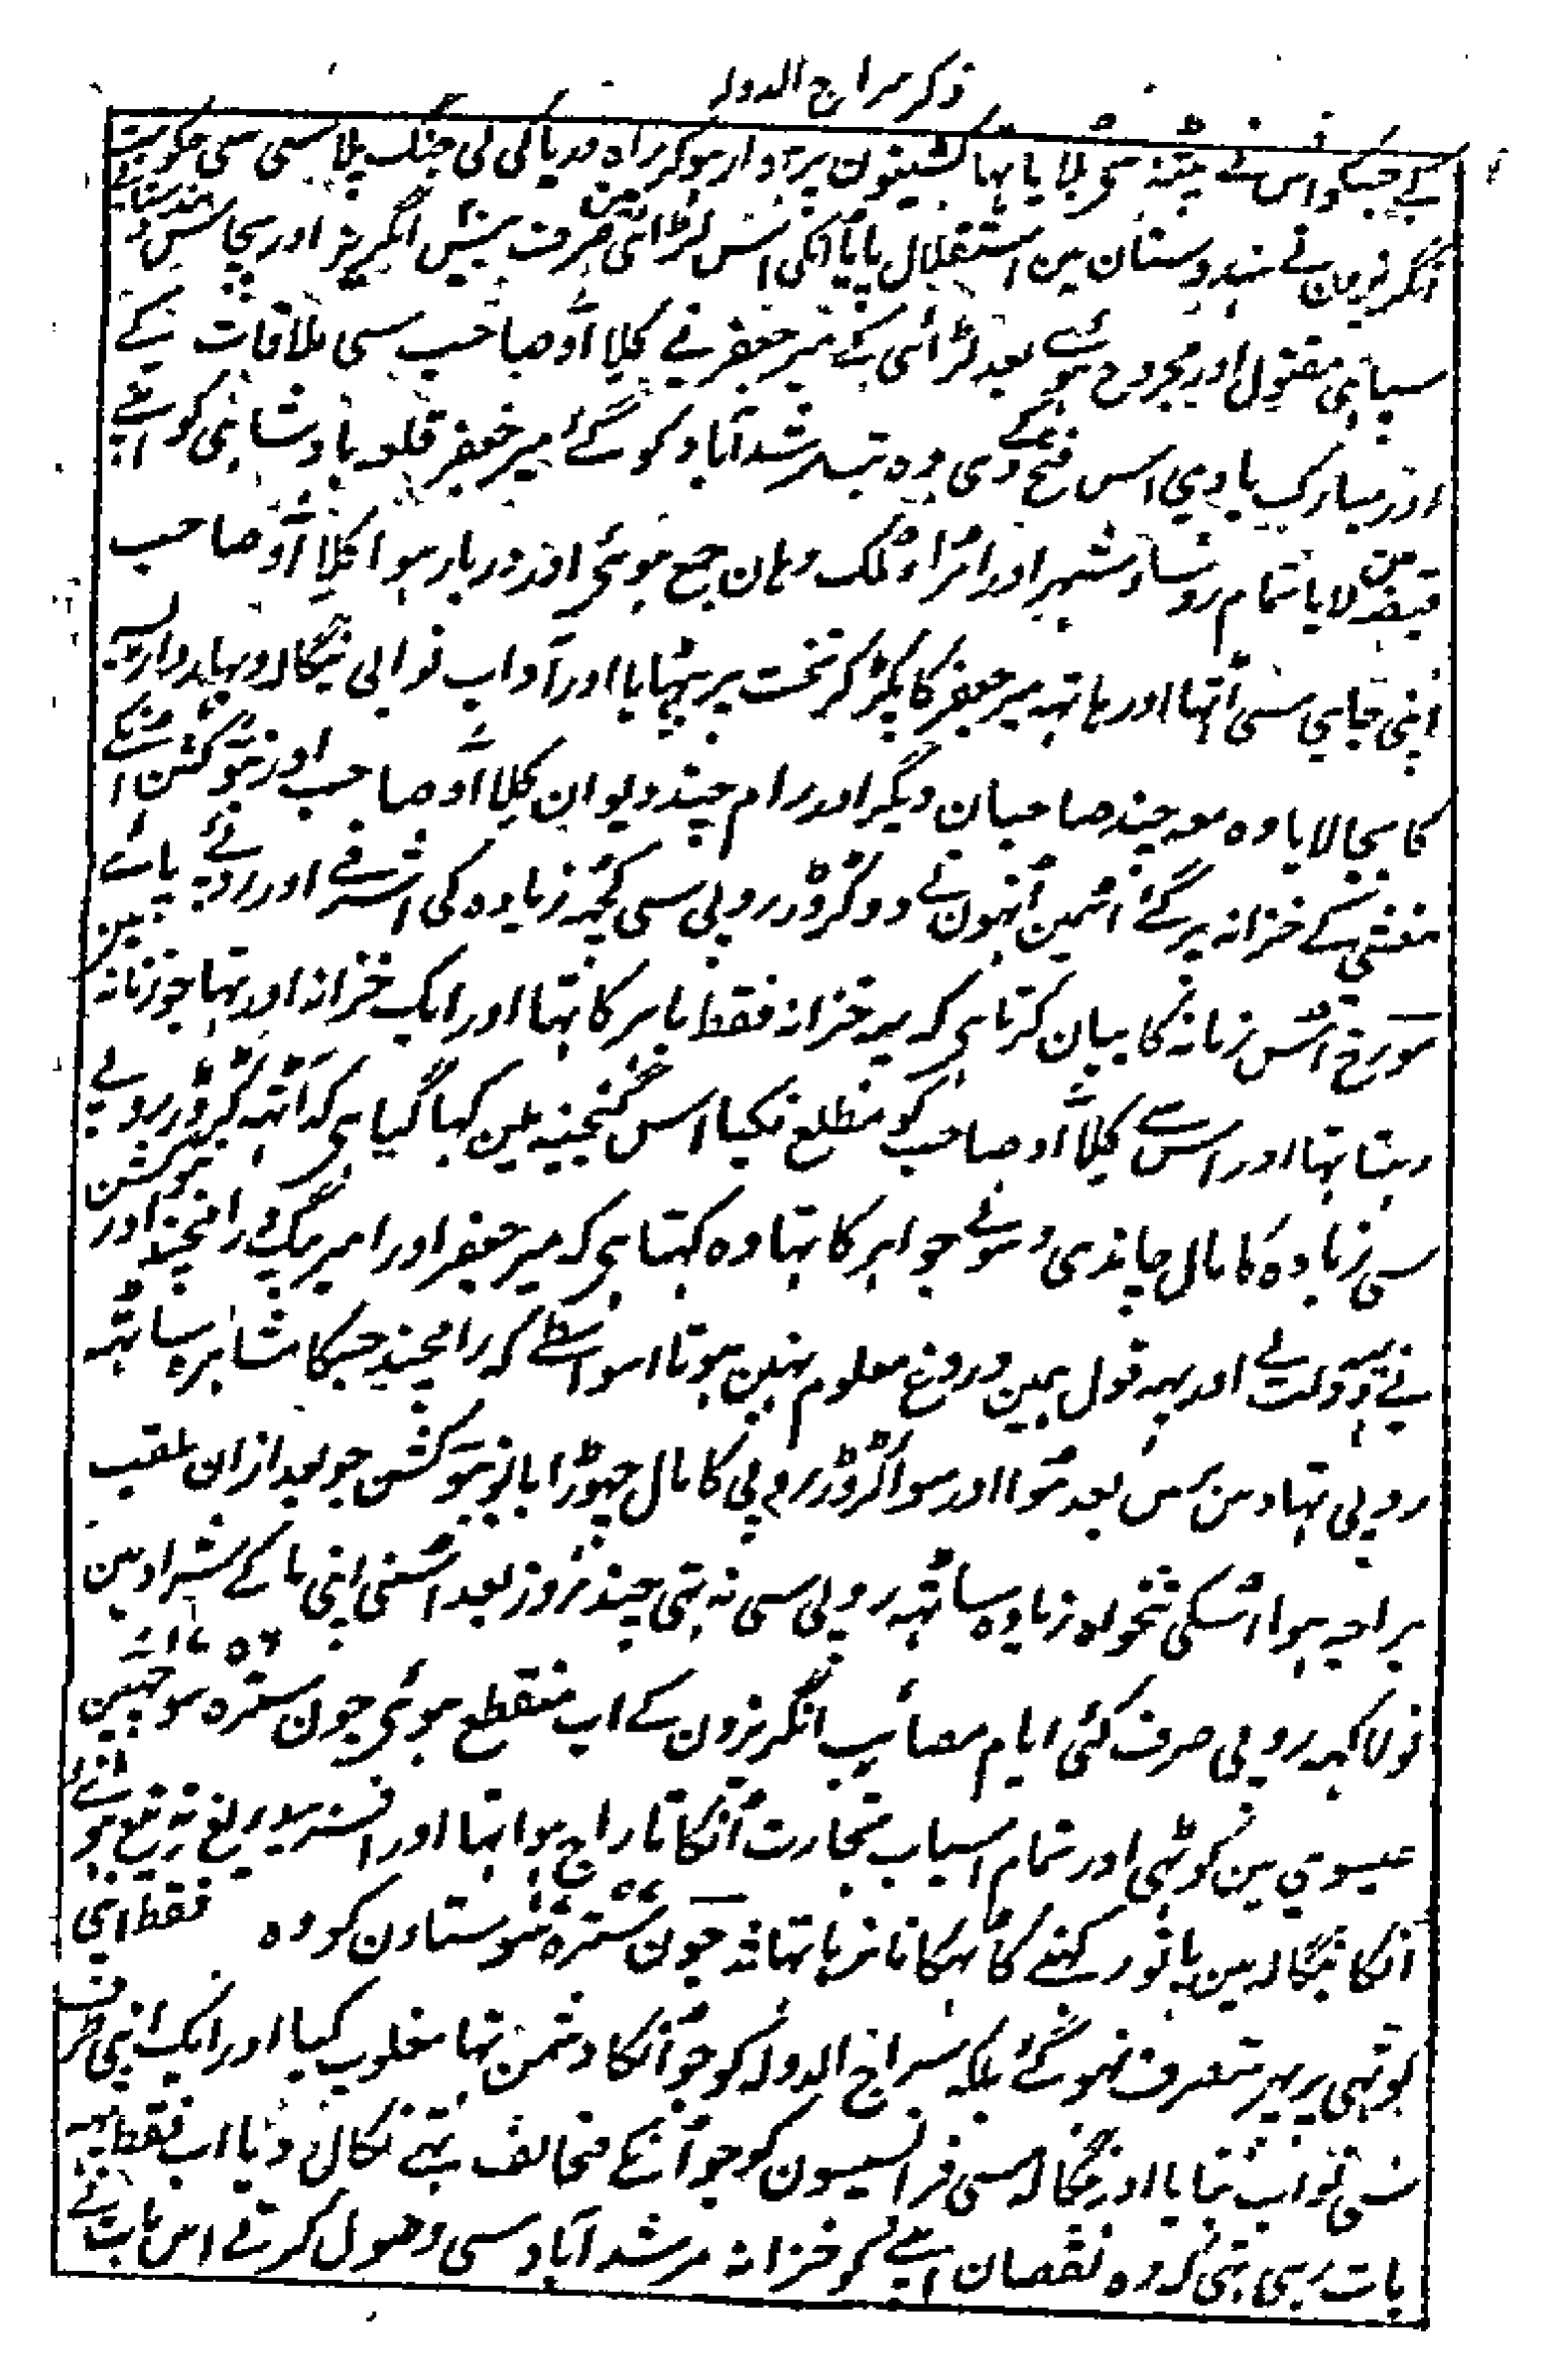 ذکر سراج الدولہ
کے جسکو اس نے پٹنہ سی بلایا تہا کشتیون پر سوار ہوکر براہ دریا کی لی جنگ پلاسی سی حکومت
انگریزون نے ہندوستان مین استقلال پایا انکی اس لڑائی مین صرف بیس انگریز اور پچاس ہندوستانی
سپاہی مقتول اور مجروح ہوئے بعد لڑائی کے میر جعفر نے کلائو صاحب سی ملاقات کے
اور مبارک بادی اس فتح کے دی وہ تب مرشدآباد کو گئے میر جعفر قلعہ بادشاہی کو اپنے
قبضہ مین لایا تمام روساء شہر اور امراء ملک وہان جمع ہوئی اور دربار ہوا کلائو صاحب
اپنی جایی سی اُٹہا اور ہاتہہ میر جعفر کا پکڑ کر تخت پر بٹہایا اور آداب نوابی بنگالہ و بہار و اڑیسہ
کا بجا لایا وہ معہ چند صاحبان دیگر اور رام چند دیوان کلائو صاحب اور نوکشن اسکے
منشی کے خزانہ پر گئے اسمین اُنہون نے دو کڑوڑ روپی سی کچہہ زیادہ کی اشرفے اور روپئے پائے
مورخ اُس زمانہ کا بیان کرتا ہی کہ یہ خزانہ فقط باہر کا تہا اور ایک خزانہ اور تہا جو زنانہ مین
رہتا تہا اور اس سے کلائو صاحب کو مطلع نکیا اس گنجینہ مین کہا گیا ہی کہ آٹہہ کڑوڑ روپے
سی زیادہ کا مال چاندی و سونے جواہر کا تہا وہ کہتا ہی کہ میر جعفر اور امیر بیگ و رامچند اور نوکشن
نے یہ دولت لے اور یہہ قول ہمین دروغ معلوم نہین ہوتا اسواسطے کہ رامچند جسکا مشاہرہ ساٹہہ
روپی تہا دس برس بعد مُوا اور سوا کڑوڑ روپی کا مال چہوڑا بابو نوکشن جو بعد ازان ملقب
براجہ ہوا اُسکی تنخواہ زیادہ ساٹہہ روپی سی نہ تہی چند روز بعد اُسنی اپنی ما کے شراد مین
نولاکہہ روپی صرف کئی ایام مصائب انگریزون کے اب منقطع ہوئی جون سترہ سو چہپن ۱۷۵۶
عیسوی مین کوٹہی اور تمام اسباب تجارت اُنکا تاراج ہوا تہا اور افسر بیدریغ تہ تیغ ہوئے تہے
اُنکا بنگالہ مین پانو رکہنے کا ٹہکانا نرہا تہا جون سترہ سو ستاون کو وہ فقط اپنی
کوٹہی پر پہر متصرف نہو گئے بلکہ سراج الدولہ کو جو اُنکا دشمن تہا مغلوب کیا اور ایک اپنی طرف
سی نواب بنایا اور بنگالہ سی فرانسیسون کو جو اُنکے مخالف تہے نکال دیا اب فقط یہہ
بات رہی تہی کہ وہ نقصان اپنے کو خزانہ مرشدآباد سی وصول کرتے اس بات